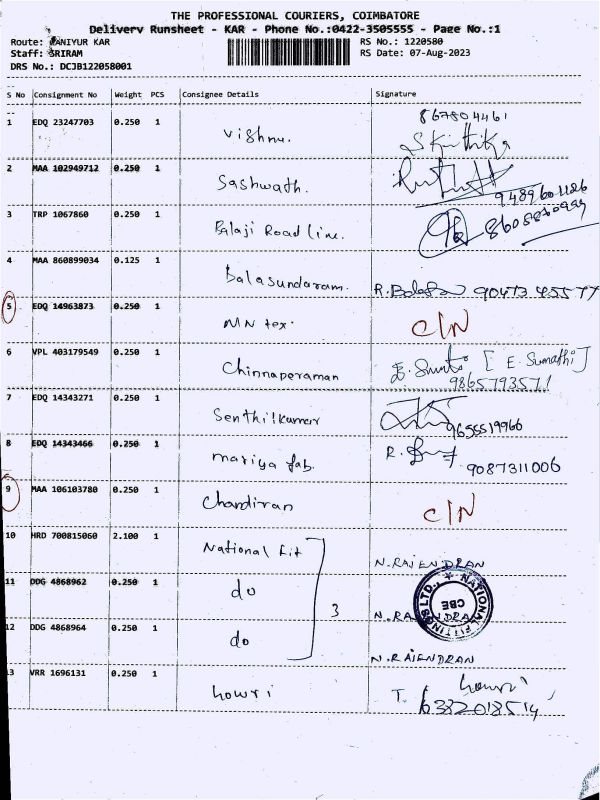 THE PROFESSIONAL COURIERS, COIMBATORE
Delivery Runsheet - KAR - Phone No.:0422-3505555 - Page No.:1
Route: KANIYUR KAR
RS No.: 1220580
Staff: SRIRAM
RS Date: 07-Aug-2023
DRS No.: DCJB122058001
S No Consignment No Weight PCS Consignee Details Signature
1 EDQ 23247703 0.250 1 Vishnu. 867804461
2 MAA 102949712 0.250 1 Sashwath. 9489601186
3 TRP 1067860 0.250 1 Balaji Road line.
4 MAA 860899034 0.125 1 Balasundaram. 90473 45577
5 EDQ 14963873 0.250 1 MN tex. C/N
6 VPL 403179549 0.250 1 Chinnaperaman [E. Sumathi]
9865793571
7 EDQ 14343271 0.250 1 Senthilkumar 9655519966
8 EDQ 14343466 0.250 1 mariya fab. 9087311006
9 MAA 106103780 0.250 1 Chandiran C/N
10 HRD 700815060 2.100 1 National fit N. RAJENDRAN
11 DDG 4868962 0.250 1 do 3 N. RAJENDRAN
NATIONAL FITTINGS LTD. CBE
12 DDG 4868964 0.250 1 do N. RAJENDRAN
13 VRR 1696131 0.250 1 howri T. howri
6382018514